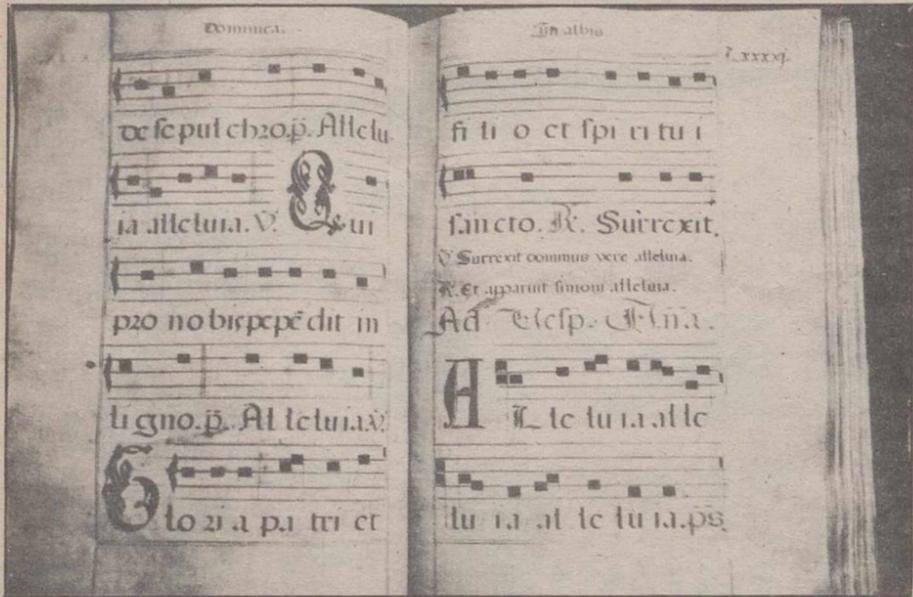 Dominica.
de se pul chro. p̄. Alle lu
ia alleluia. V. Qui
pro no bis pepē dit in
li gno. p̄. Al leluia. V.
Glo ri a pa tri et
In albis
f. xxxxj.
fi li o et spi ri tu i
sancto. R. Surrexit.
V. Surrexit dominus vere alleluia.
R. Et apparuit simoni alleluia.
Ad Vesp. Añna.
AL le lu ia al le
lu ia al le lu ia. p̄s.